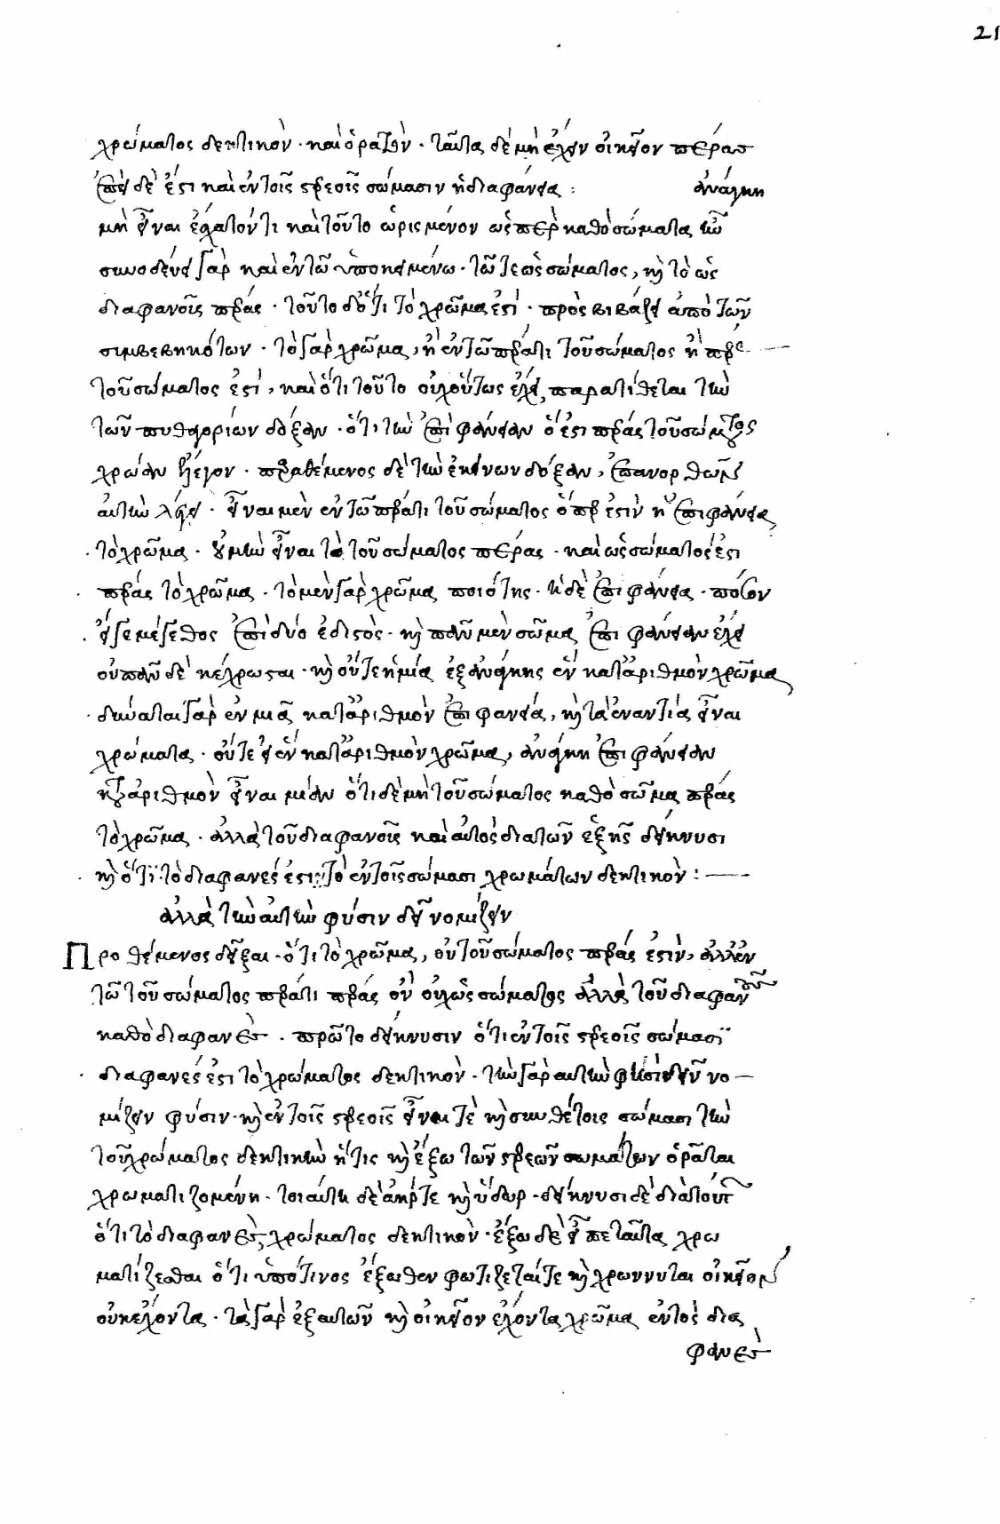 21
χρώματος δεκτικὸν · καὶ ὁρατὸν · ταῦτα δὲ μὴ ἔχειν οἰκεῖον πέρας
ἐπεὶ δὲ ἐστι καὶ ἐν τοῖς στερεοῖς σώμασιν ἡ διαφάνεια : ἀνάγκη
μὴ εἶναι ἔσχατόν τι καὶ τοῦτο ὡρισμένον ὥσπερ καθὸ σώματα τῶ
συνοδεύει γὰρ καὶ ἐν τῶ ὑποκειμένω · τῶ τε ὡς σώματος, καὶ τὸ ὡς
διαφανοῦς πέρας · τοῦτο δ' ὅτι τὸ χρῶμα ἐστί · προσβιβάζει ἀπὸ τῶν
συμβεβηκότων · τὸ γὰρ χρῶμα, ἢ ἐν τῶ πέρατι τοῦ σώματος ἢ πέρας
τοῦ σώματος ἐστί, καὶ ὅτι τοῦτο οὐχ οὕτως ἔχει, παρατίθεται τὴν
τῶν πυθαγορίων δόξαν · ὅτι τὴν ἐπιφάνειαν ὅ ἐστι πέρας τοῦ σώματος
χροιὰν ἔλεγον · παραθέμενος δὲ τὴν ἐκείνων δόξαν, ἐπανορθῶν
αὐτὴν λέγει · εἶναι μὲν ἐν τῶ πέρατι τοῦ σώματος ὅπερ ἐστὶν ἡ ἐπιφάνεια
τὸ χρῶμα · οὐ μὴν εἶναι τὸ τοῦ σώματος πέρας · καὶ ὡς σώματος ἐστι
πέρας τὸ χρῶμα · τὸ μὲν γὰρ χρῶμα ποιότης · ἡ δὲ ἐπιφάνεια · ποσὸν
εἴγε μέγεθος ἐπὶ δύο ἐστὶ · καὶ πᾶν μὲν σῶμα ἐπιφάνειαν ἔχει
οὐ πᾶν δὲ κέχρωσται · καὶ οὔτε ἡ μία ἐξ ἀνάγκης ἓν κατ' ἀριθμὸν χρῶμα
δύναται γὰρ ἐν μιᾶ κατ' ἀριθμὸν ἐπιφανεία, καὶ τὰ ἐναντία εἶναι
χρώματα · οὔτε εἰ ἓν κατ' ἀριθμὸν χρῶμα, ἀνάγκη ἐπιφάνειαν
κατ' ἀριθμὸν εἶναι μίαν ὅτι δὲ μὴ τοῦ σώματος καθὸ σῶμα πέρας
τὸ χρῶμα · ἀλλὰ τοῦ διαφανοῦς καὶ αὐτὸς διὰ τῶν ἑξῆς δείκνυσι
καὶ ὅτι τὸ διαφανές ἐστι τὸ ἐν τοῖς σώμασι χρωμάτων δεκτικὸν :
ἀλλὰ τὴν αὐτὴν φύσιν δεῖ νομίζειν
Προθέμενος δεῖξαι · ὅτι τὸ χρῶμα, οὐ τοῦ σώματος πέρας ἐστὶν, ἀλλ' ἐν
τῶ τοῦ σώματος πέρατι πέρας ὂν οὐχ ὡς σώματος ἀλλὰ τοῦ διαφανοῦς
καθὸ διαφανὲς · πρῶτο δείκνυσιν ὅτι ἐν τοῖς στερεοῖς σώμασι
διαφανές ἐστι τὸ χρώματος δεκτικὸν · τὴν γὰρ αὐτὴν φησὶ δεῖν νο
μίζειν φύσιν · καὶ ἐν τοῖς στερεοῖς εἶναι τὲ καὶ συνθέτοις σώμασι τὴν
τοῦ χρώματος δεκτικὴν ἥτις καὶ ἔξω τῶν στερεῶν σωμάτων ὁρᾶται
χρωματιζομένη · τοιαύτη δὲ ἀήρ τε καὶ ὕδωρ · δείκνυσι δὲ διὰ τούτου
ὅτι τὸ διαφανὲς χρώματος δεκτικὸν · ἔξω δὲ εἶπε ταῦτα χρω
ματίζεσθαι ὅτι ὑπό τινος ἔξωθεν φωτίζεταί τε καὶ χρώννυται οἰκεῖον
οὐκ ἔχοντα · τὰ γὰρ ἐξ αὑτῶν καὶ οἰκεῖον ἔχοντα χρῶμα ἐντὸς δια
φανὲς